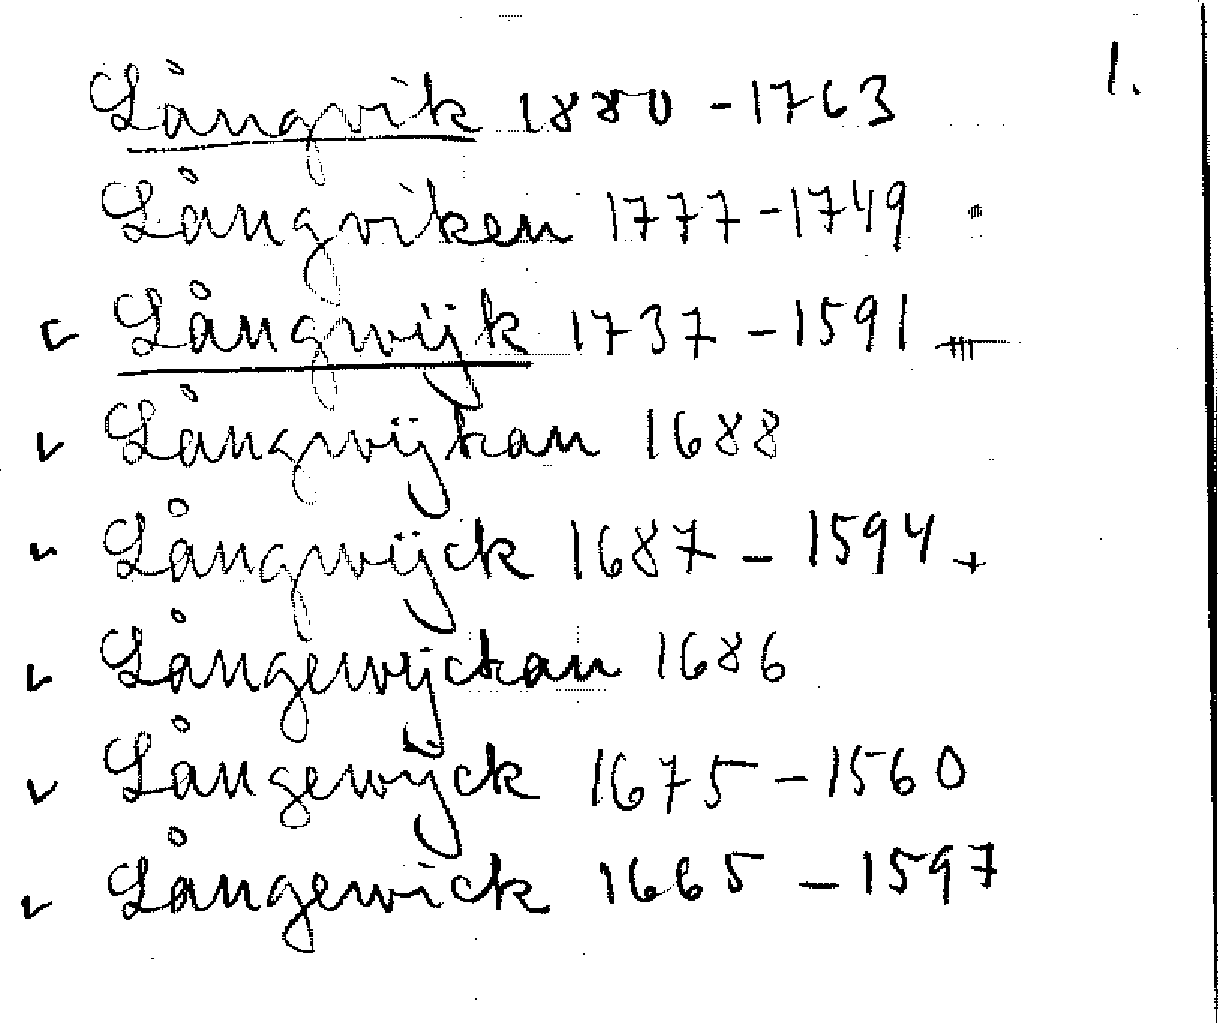 1.
Långvik 1880 - 1763
Långviken 1777 - 1749
Långwijk 1737 - 1591
Långwijkan 1688
Långwijck 1687 - 1594 +
Långewijckan 1686
Långewijck 1675 - 1560
Långewick 1665 - 1597